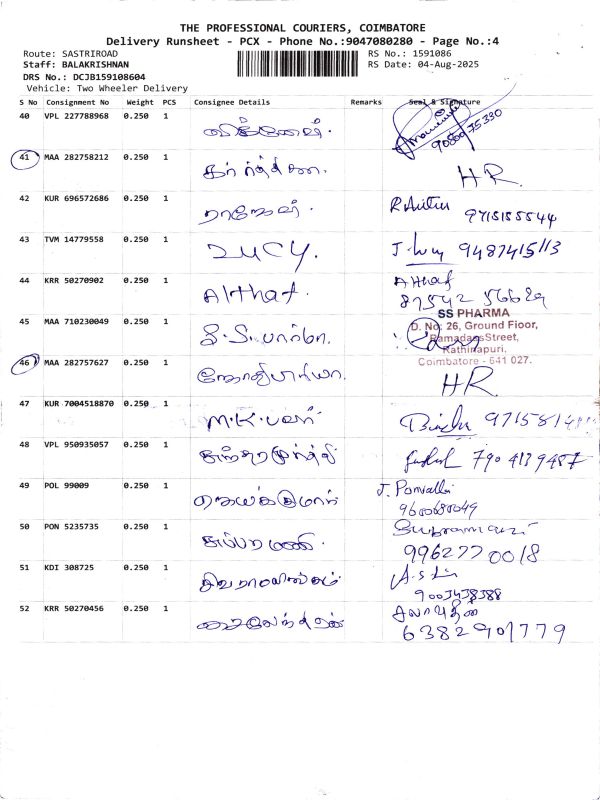 THE PROFESSIONAL COURIERS, COIMBATORE
Delivery Runsheet - PCX - Phone No.:9047080280 - Page No.:4
Route: SASTRIROAD RS No.: 1591086
Staff: BALAKRISHNAN RS Date: 04-Aug-2025
DRS No.: DCJB159108604
Vehicle: Two Wheeler Delivery
S No Consignment No Weight PCS Consignee Details Remarks Seal & Signature
40 VPL 227788968 0.250 1 விக்னேஷ்.
41 MAA 282758212 0.250 1 HR.
42 KUR 696572686 0.250 1 ராஜேஷ். 9715155544
43 TVM 14779558 0.250 1 LUCY. J. Lucy 9487415113
44 KRR 50270902 0.250 1 Althaf. Althaf
87542 56629
SS PHARMA
D. No: 26, Ground Floor,
45 MAA 710230049 0.250 1
Ramadass Street,
Rathinapuri,
Coimbatore - 641 027.
46 MAA 282757627 0.250 1 ஜோதிபிரியா. HR
47 KUR 7004518870 0.250 1 M.K.பனி
48 VPL 950935057 0.250 1 சுந்தரமூர்த்தி 7904139487
49 POL 99009 0.250 1 ஜெயக்குமார் J. Ponvalli
9600680049
50 PON 5235735 0.250 1 சுப்பரமணி.
9962770018
51 KDI 308725 0.250 1 சிவராமலிங்கம்
9003438388
52 KRR 50270456 0.250 1 சைலேந்திரன்
6382901779